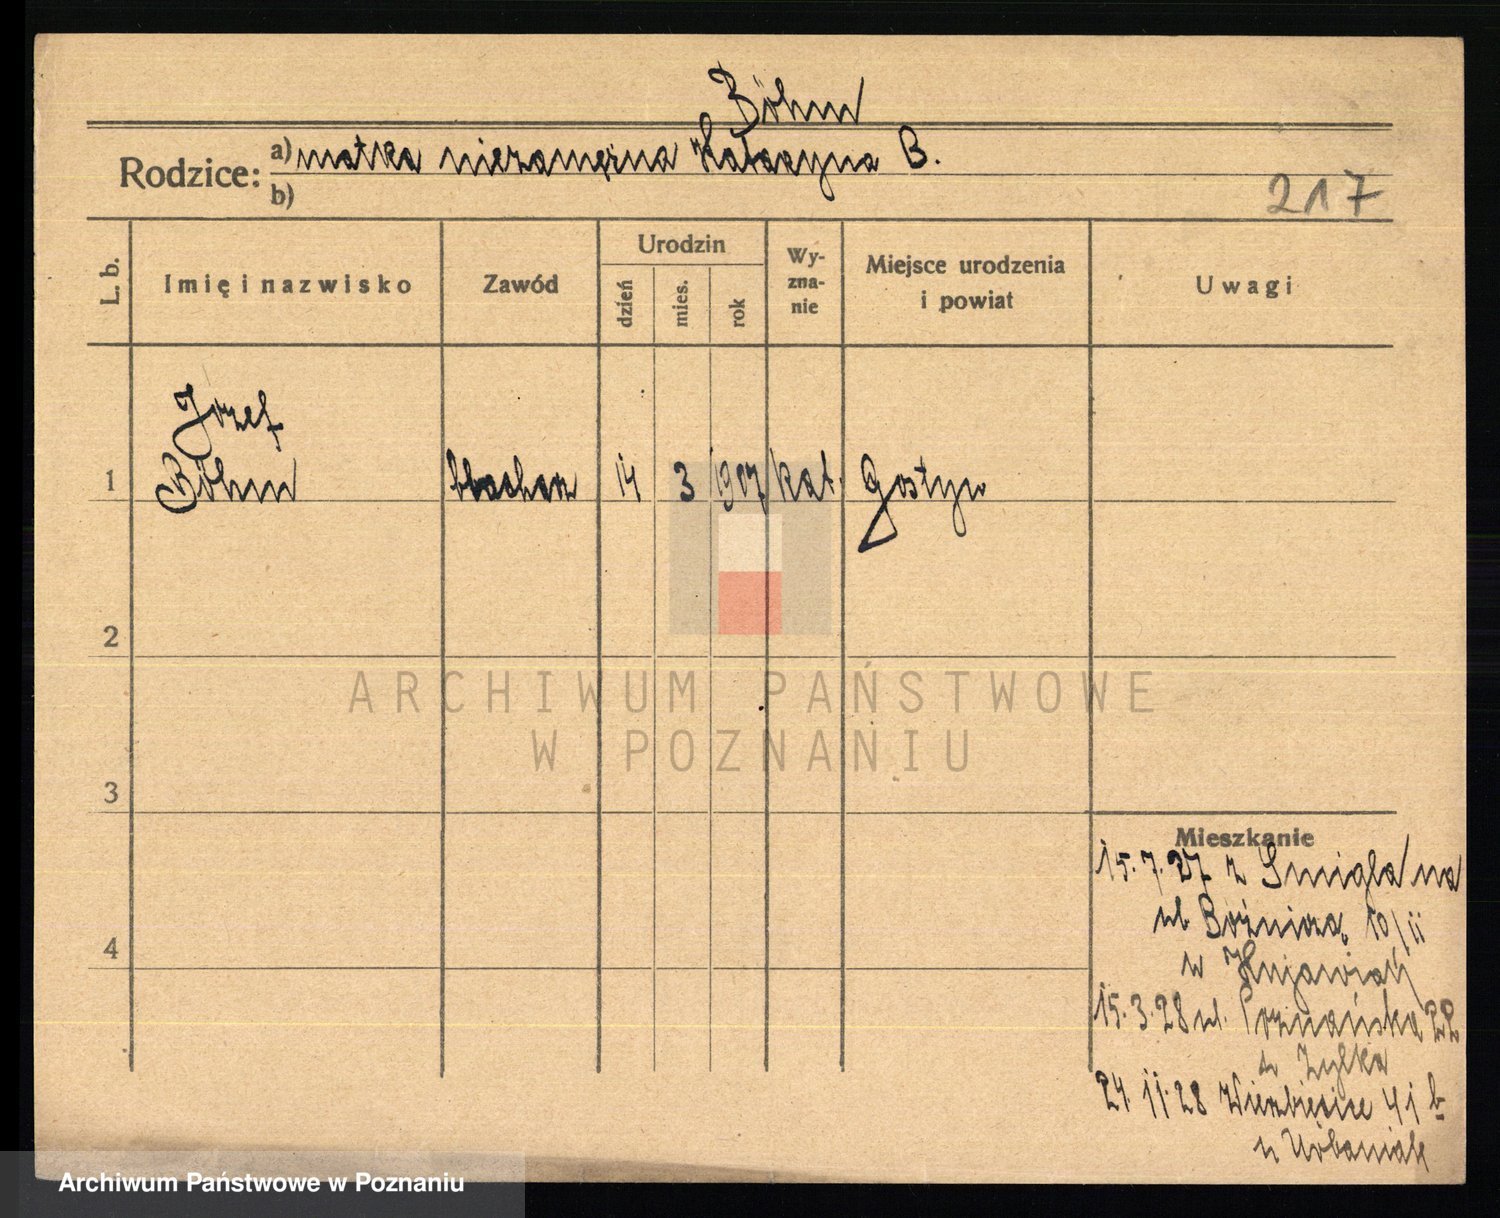 Böhm
Rodzice: a) matka niezamężna Katarzyna B.
b)
217
L. b.
Imię i nazwisko
Zawód
Urodzin
dzień
mies.
rok
Wy-
zna-
nie
Miejsce urodzenia
i powiat
Uwagi
Józef
1 Böhm blacharz 14 3 1907 kat. Gostyń
2
3
4
Mieszkanie
15.7.27 z Śmigla na
ul. Bóżniczą 10/11
w
15.3.28 ul. Poznańska 22
u Zyłka
24.11.28 Wierzbięcice 41 b
u Urbaniak
ARCHIWUM PAŃSTWOWE
W POZNANIU
Archiwum Państwowe w Poznaniu